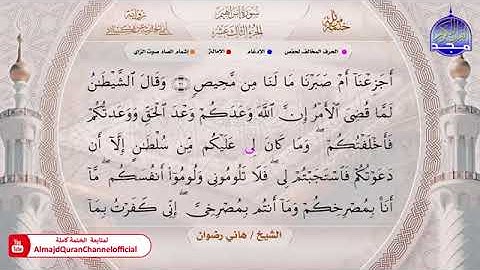 سورة إبراهيم
الجزء الثالث عشر
الحرف المخالف لحفص
الإدغام
الإمالة
إشمام الصاد صوت الزاي
أَجَزِعْنَا أَمْ صَبَرْنَا مَا لَنَا مِن مَّحِيصٍ ۝ وَقَالَ الشَّيْطَٰنُ
لَمَّا قُضِيَ الْأَمْرُ إِنَّ اللَّهَ وَعَدَكُمْ وَعْدَ الْحَقِّ وَوَعَدتُّكُمْ
فَأَخْلَفْتُكُمْ ۖ وَمَا كَانَ لِي عَلَيْكُم مِّن سُلْطَٰنٍ إِلَّا أَن
دَعَوْتُكُمْ فَاسْتَجَبْتُمْ لِي ۖ فَلَا تَلُومُونِي وَلُومُوا أَنفُسَكُم ۖ مَّا
أَنَا بِمُصْرِخِكُمْ وَمَا أَنتُم بِمُصْرِخِيِّ ۖ إِنِّي كَفَرْتُ بِمَا
الشيخ / هاني رضوان
لمتابعة الختمة كاملة
AlmajdQuranChannelofficial